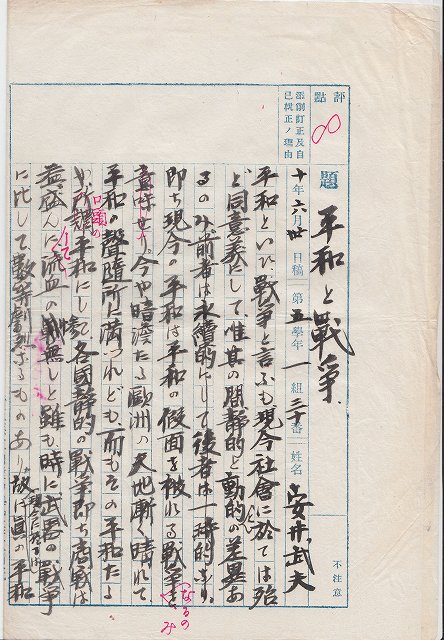 評點
8
添削訂正及自
己批正ノ理由
題 平和と戰爭、
十年六月廿日稿 第五學年一組三十番 姓名 安井武夫
不注意
平和といひ、戰爭と言ふも現今社會に於ては殆
ど同意義にして、唯其の間靜的と動的の差異あ
るのみ前者は永續的にして後者は一時的なり、
即ち現今の平和は平和の假面を被れる戰爭を
なるのみ
意味せり、今や暗澹たる歐洲の天地漸く晴れて
平和の聲隨所に滿つれども、而もその平和たる
口頭の
や所謂平和にして、各國靜的の戰爭即ち商戰は
益盛んに流血の慘無しと雖も、時に武器の戰爭
に比して數等劇烈なるものあり、故に眞の平和